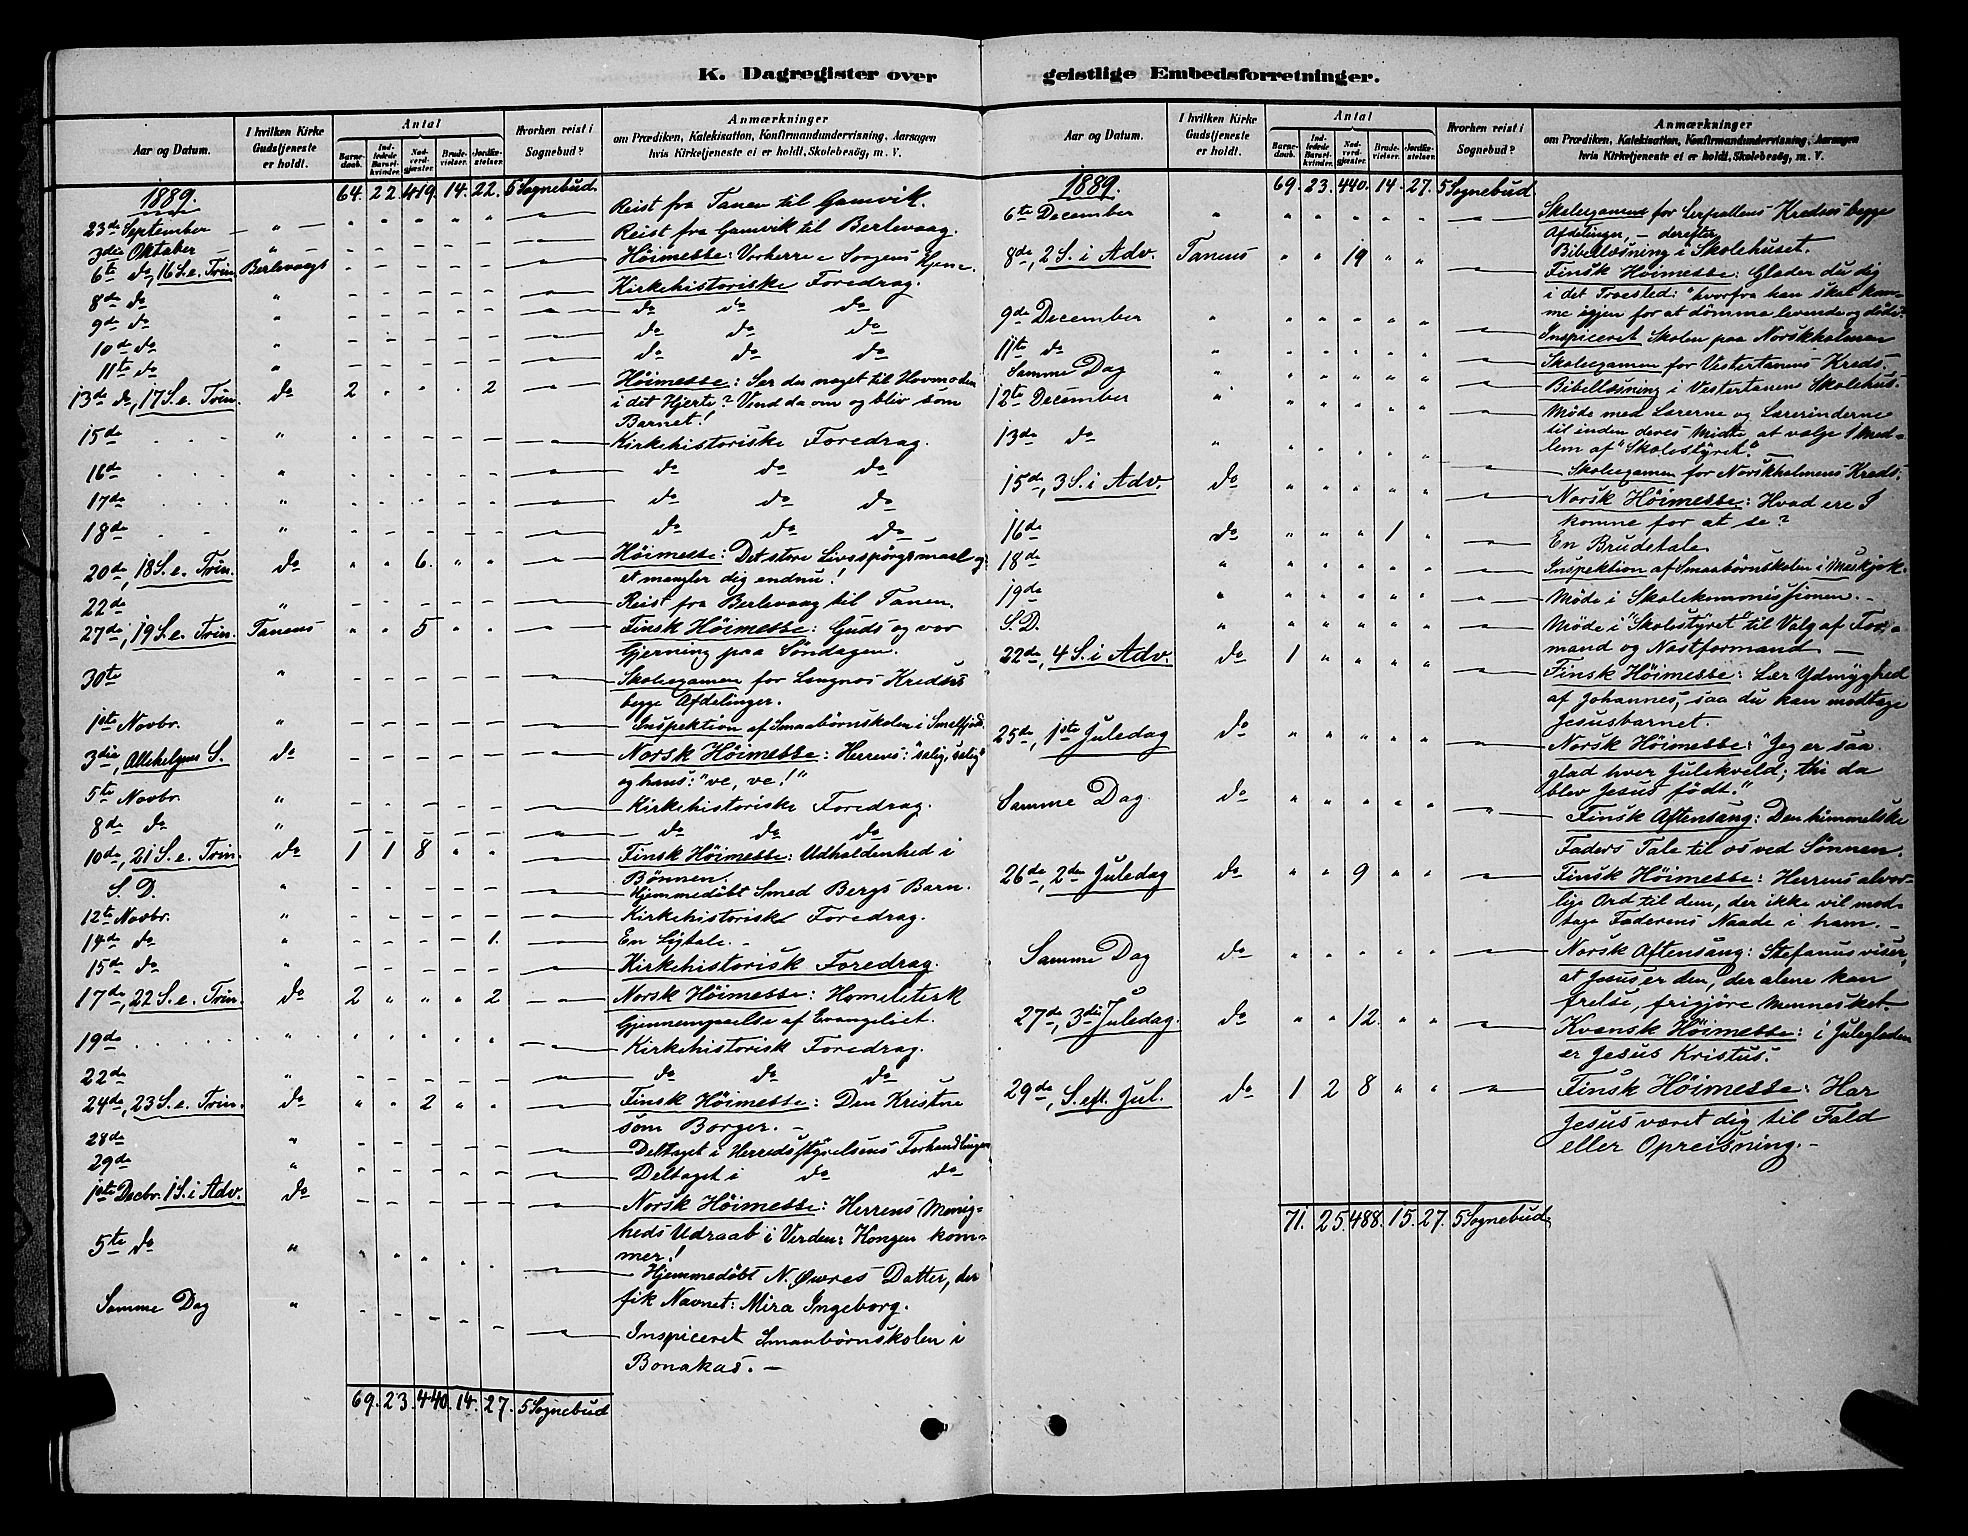 K. Dagregister over geistlige Embedsforretninger.
Aar og Datum. I hvilken Kirke Gudstjeneste er holdt. Antal Barnedaab. Indledede Barselkvinder. Nadverdgjæster. Brudevielser. Jordfæstelser. Hvorhen reist i Sognebud? Anmærkninger om Prædiken, Katekisation, Konfirmandundervisning, Aarsagen hvis Kirketjeneste ei er holdt, Skolebesøg, m. V.
1889. 64. 22. 419. 14. 22. 5 Sognebud.
23de September — " — " " " " " Reist fra Tanen til Gamvik.
3die Oktober — " — Reist fra Gamvik til Berlevaag.
6te do, 16 S. e. Trin. Berlevaags Höimesse: Vorherre i Sorgens
8de do " Kirkehistoriske Foredrag.
9de do " do do do
10de do " do do do
11te do " do do do
13de do, 17 S. e. Trin. do 2 " " " 2 Höimesse: Ser du noget til Hovmoden
i det Hjerte? Vend da om og bliv som
Barnet!
15de . . . " Kirkehistoriske Foredrag.
16de . . . " do do do
17de . . . " do do do
18de . . . " do do do
20de, 18 S. e. Trin. do " " 6. " " Höimesse: Det store Livsspörgsmaal og
et mangler dig endnu!
22de " Reist fra Berlevaag til Tanen.
27de, 19 S. e. Trin. Tanens " " 5 " " Finsk Höimesse: Guds og vor
Gjerning paa Söndagen.
30te " Skoleexamen for Langnes Kredses
begge Afdelinger.
1ste Novbr. " Inspektion af Smaabörnskolen i Smelfjord.
3die, Allehelgens S. do Norsk Höimesse: Herrens: "salig, salig"
og hans: "ve, ve!"
5te Novbr. " Kirkehistoriske Foredrag.
8de do " do do do
10de, 21 S. e. Trin. do 1 1 8 " " Finsk Höimesse: Udholdenhed i
Bönnen.
S. D. " Hjemmedöbt Smed Bergs Barn.
12te Novbr. " Kirkehistorisk Foredrag.
14de do " 1. En Ligtale. —
15de do " Kirkehistorisk Foredrag.
17de, 22 S. e. Trin. do 2 " " " 2 Norsk Höimesse: Homeletisk
Gjennemgaaelse af Evangeliet.
19de . . . . . " Kirkehistorisk Foredrag.
22de " do do do
24de, 23 S. e. Trin. do " " 2 " " Finsk Höimesse: Den Kristne
som Borger. —
28de " Deltaget i Herredsstyrelsens Forhandlinger.
29de " Deltaget i do do
1ste Decbr. 1 S. i Adv. do Norsk Höimesse: Herrens Menig-
heds Udraab i Verden: Kongen kom-
mer!
5te do " Hjemmedöbt N. Øwres Datter, der
fik Navnet: Mira Ingeborg.
Samme Dag " Inspiceret Smaabörnskolen i
Bonakas. —
69. 23. 440. 14. 27. 5 Sognebud
Aar og Datum. I hvilken Kirke Gudstjeneste er holdt. Antal Barnedaab. Indledede Barselkvinder. Nadverdgjæster. Brudevielser. Jordfæstelser. Hvorhen reist i Sognebud? Anmærkninger om Prædiken, Katekisation, Konfirmandundervisning, Aarsagen hvis Kirketjeneste ei er holdt, Skolebesøg, m. V.
1889. 69. 23. 440. 14. 27. 5 Sognebud
6te December " Skoleexamen for Kredses begge
Afdelinger, — derefter
Bibellæsning i Skolehuset.
8de, 2 S. i Adv. Tanens " " 19 " " Finsk Höimesse: Glæder du dig
i det Troesled: "hvorfra han skal kom-
me igjen for at dömme levende og döde."
9de December " Inspiceret Skolen paa Norskholmen
11te do " Skoleexamen for Vestertanens Kreds.
Samme Dag " Bibellæsning i Vestertanens Skolehus.
12te December " Möde med Lærerne og Lærerinderne
til inden deres Midte at vælge 1 Med-
lem af "Skolestyret."
13de do " Skoleexamen for Norskholmens Kreds.
15de, 3 S. i Adv. do Norsk Höimesse: Hvad ere I
komne for at se?
16de do " " " 1 " En Brudetale
18de " Inspektion af Smaabörnskolen i Maskjok.
19de " Möde i Skolekommissionen. —
S. D. " Möde i "Skolestyret" til Valg af For-
mand og Næstformand —
22de, 4 S. i Adv. do 1 " " " " Finsk Höimesse: Lær Ydmyghed
af Johannes, saa du kan modtage
Jesusbarnet.
25de, 1ste Juledag do Norsk Höimesse: "Jeg er saa
glad hver Julekveld; thi da
blev Jesus födt."
Samme Dag. do Finsk Aftensang: Den himmelske
Faders Tale til os ved Sönnen.
26de, 2den Juledag do " " 9 " " Finsk Höimesse: Herrens alvor-
lige Ord til dem, der ikke vil mod-
tage Faderens Naade i ham. —
Samme Dag do Norsk Aftensang: Stefanus viser,
at Jesus er den, der alene kan
frelse, frigjöre Mennesket.
27de, 3die Juledag. do " " 12. " " Kvænsk Höimesse: i Juleglæden
er Jesus Kristus.
29de, S. eft. Jul. do 1 2 8 " " Finsk Höimesse: Har
Jesus været dig til Fald
eller Opreisning. —
71. 25. 488. 15. 27. 5 Sognebud.